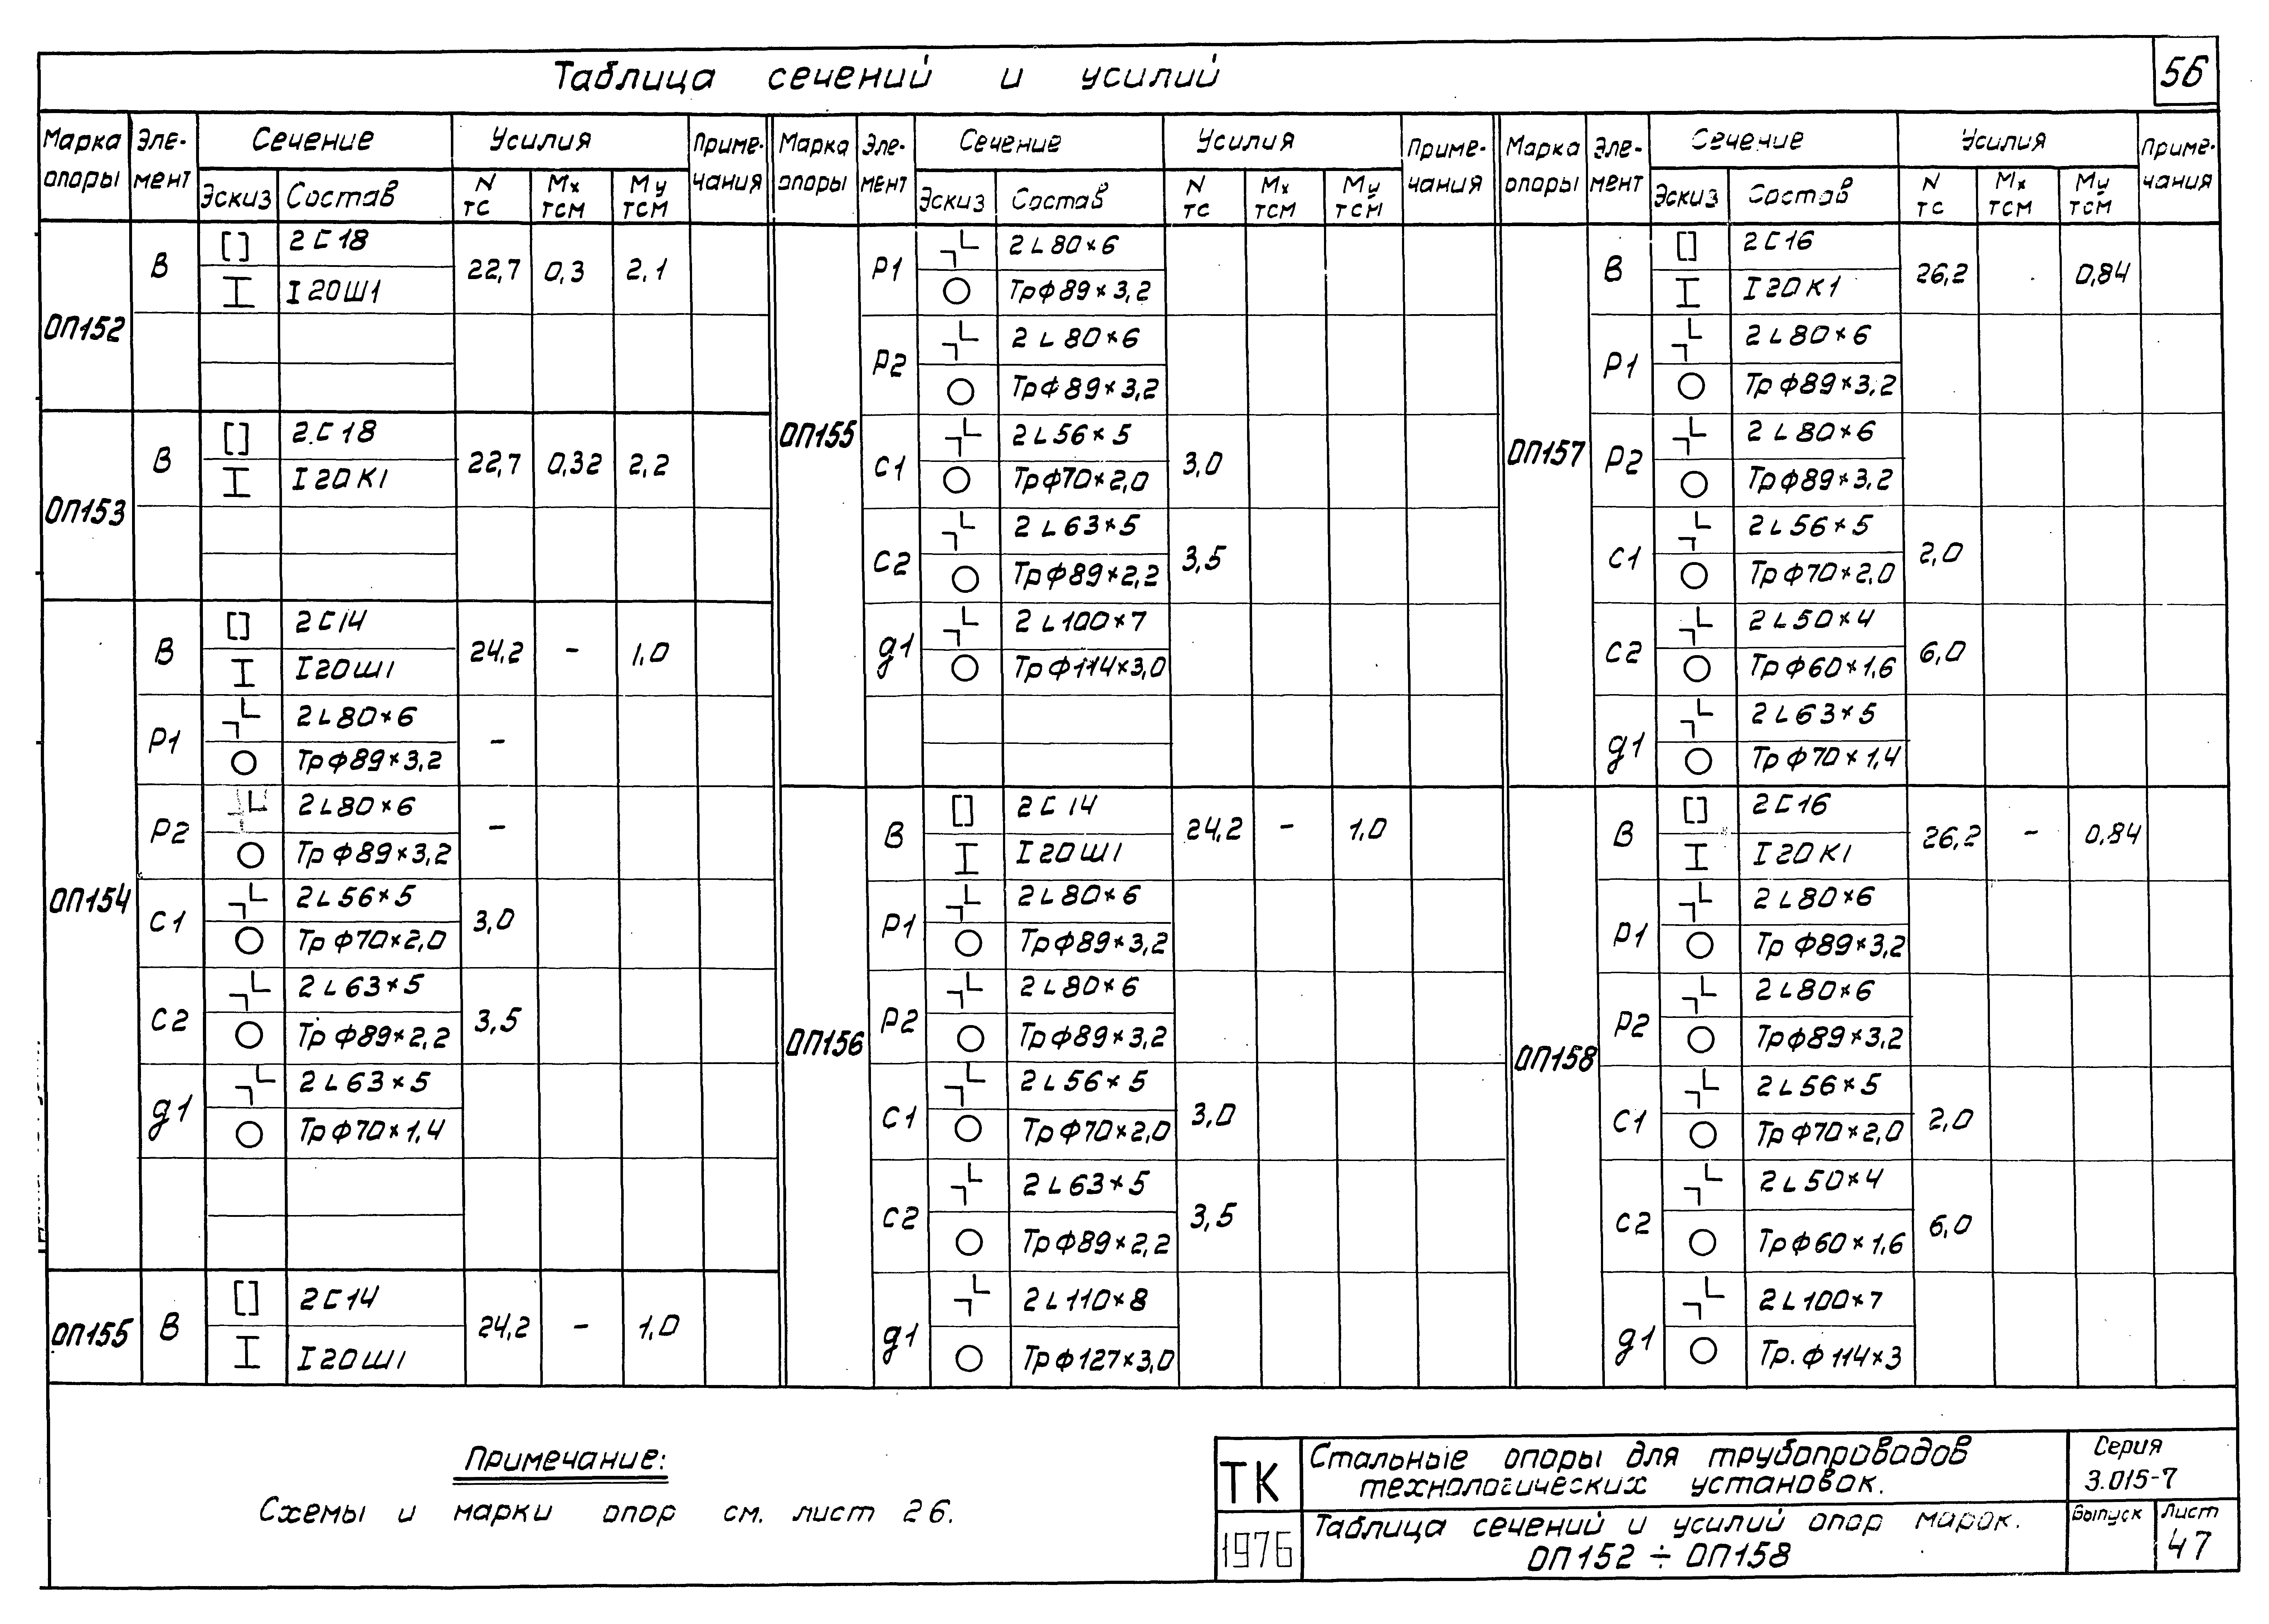 Таблица сечений и усилий
56
Марка опоры Эле-мент Сечение Усилия Приме-чания
Эскиз Состав N тс Mx тсм My тсм
ОП152 В 2[18 22,7 0,3 2,1
I20Ш1
ОП153 В 2[18 22,7 0,32 2,2
I20К1
ОП154 В 2[14 24,2 - 1,0
I20Ш1
Р1 2L80×6 -
ТрФ89×3,2
Р2 2L80×6 -
ТрФ89×3,2
С1 2L56×5 3,0
ТрФ70×2,0
С2 2L63×5 3,5
ТрФ89×2,2
g1 2L63×5
ТрФ70×1,4
ОП155 В 2[14 24,2 - 1,0
I20Ш1
Марка опоры Эле-мент Сечение Усилия Приме-чания
Эскиз Состав N тс Mx тсм My тсм
ОП155 Р1 2L80×6
ТрФ89×3,2
Р2 2L80×6
ТрФ89×3,2
С1 2L56×5 3,0
ТрФ70×2,0
С2 2L63×5 3,5
ТрФ89×2,2
g1 2L100×7
ТрФ114×3,0
ОП156 В 2[14 24,2 - 1,0
I20Ш1
Р1 2L80×6
ТрФ89×3,2
Р2 2L80×6
ТрФ89×3,2
С1 2L56×5 3,0
ТрФ70×2,0
С2 2L63×5 3,5
ТрФ89×2,2
g1 2L110×8
ТрФ127×3,0
Марка опоры Эле-мент Сечение Усилия Приме-чания
Эскиз Состав N тс Mx тсм My тсм
ОП157 В 2[16 26,2 - 0,84
I20К1
Р1 2L80×6
ТрФ89×3,2
Р2 2L80×6
ТрФ89×3,2
С1 2L56×5 2,0
ТрФ70×2,0
С2 2L50×4 6,0
ТрФ60×1,6
g1 2L63×5
ТрФ70×1,4
ОП158 В 2[16 26,2 - 0,84
I20К1
Р1 2L80×6
ТрФ89×3,2
Р2 2L80×6
ТрФ89×3,2
С1 2L56×5 2,0
ТрФ70×2,0
С2 2L50×4 6,0
ТрФ60×1,6
g1 2L100×7
Тр.Ф114×3
Примечание:
Схемы и марки опор см. лист 26.
ТК
1976
Стальные опоры для трубопроводов
технологических установок.
Таблица сечений и усилий опор марок.
ОП152 ÷ ОП158
Серия
3.015-7
Выпуск
Лист
47